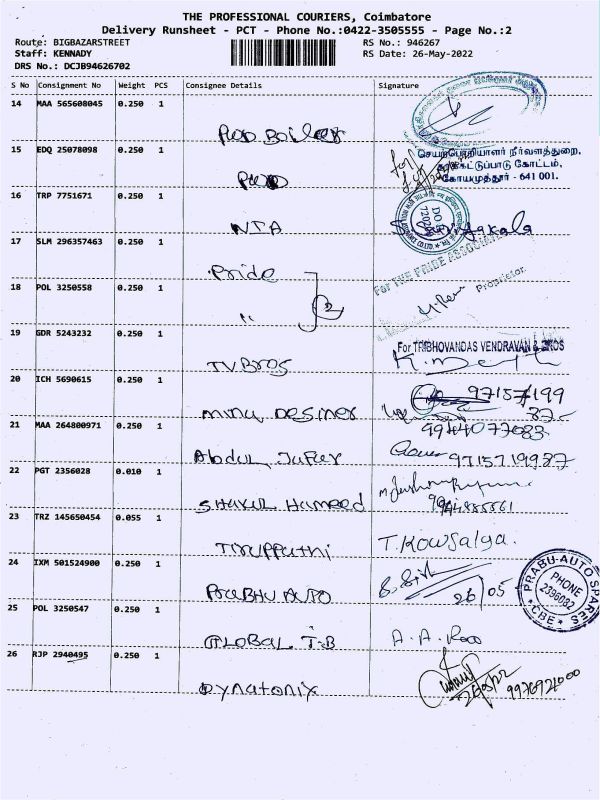 THE PROFESSIONAL COURIERS, Coimbatore
Delivery Runsheet - PCT - Phone No.:0422-3505555 - Page No.:2
Route: BIGBAZARSTREET RS No.: 946267
Staff: KENNADY RS Date: 26-May-2022
DRS No.: DCJB94626702
S No Consignment No Weight PCS Consignee Details Signature
14 MAA 565608045 0.250 1
PWD Boiler
15 EDQ 25078098 0.250 1
செயற்பொறியாளர் நீர்வளத்துறை,
கோட்டம்,
கோயமுத்தூர் - 641 001.
PWD
16 TRP 7751671 0.250 1
NIA
17 SLM 296357463 0.250 1
Pride
For THE PRIDE
Proprietor
18 POL 3250558 0.250 1
"
19 GDR 5243232 0.250 1
For TRIBHOVANDAS VENDRAVAN & BROS
TV Bros
20 ICH 5690615 0.250 1
Minu Desiner
21 MAA 264800971 0.250 1
Abdul Jafer 9715719987
22 PGT 2356028 0.010 1
Shakul Hameed
23 TRZ 145650454 0.055 1
Tiruppathi T. Kowsalya.
24 IXM 501524900 0.250 1
Prabhu Auto 26/05
PRABU-AUTO SPARES
PHONE
2396082
CBE
25 POL 3250547 0.250 1
Global T-B A. A. Roo
26 RJP 2940495 0.250 1
Dynatonix